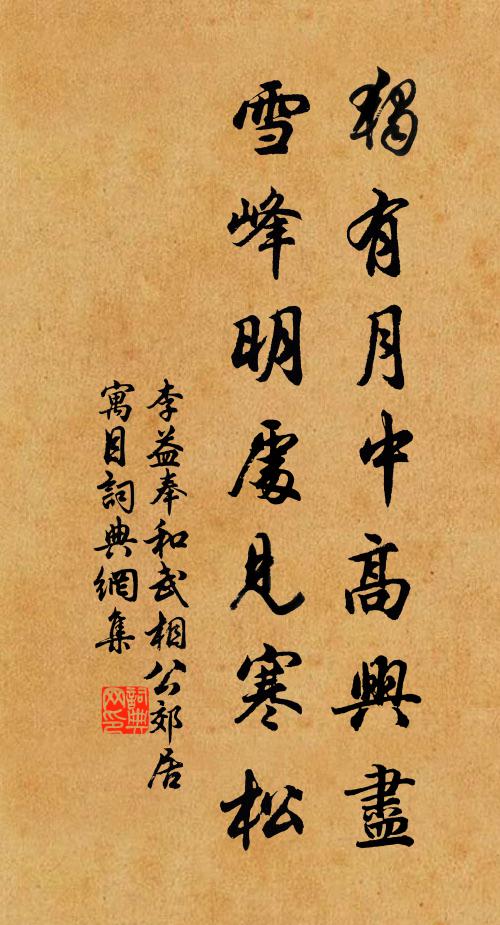 獨有月中高興盡
雪峰明處見寒松
李益奉和武相公郊居
寓目詞典網集
詞典
网印